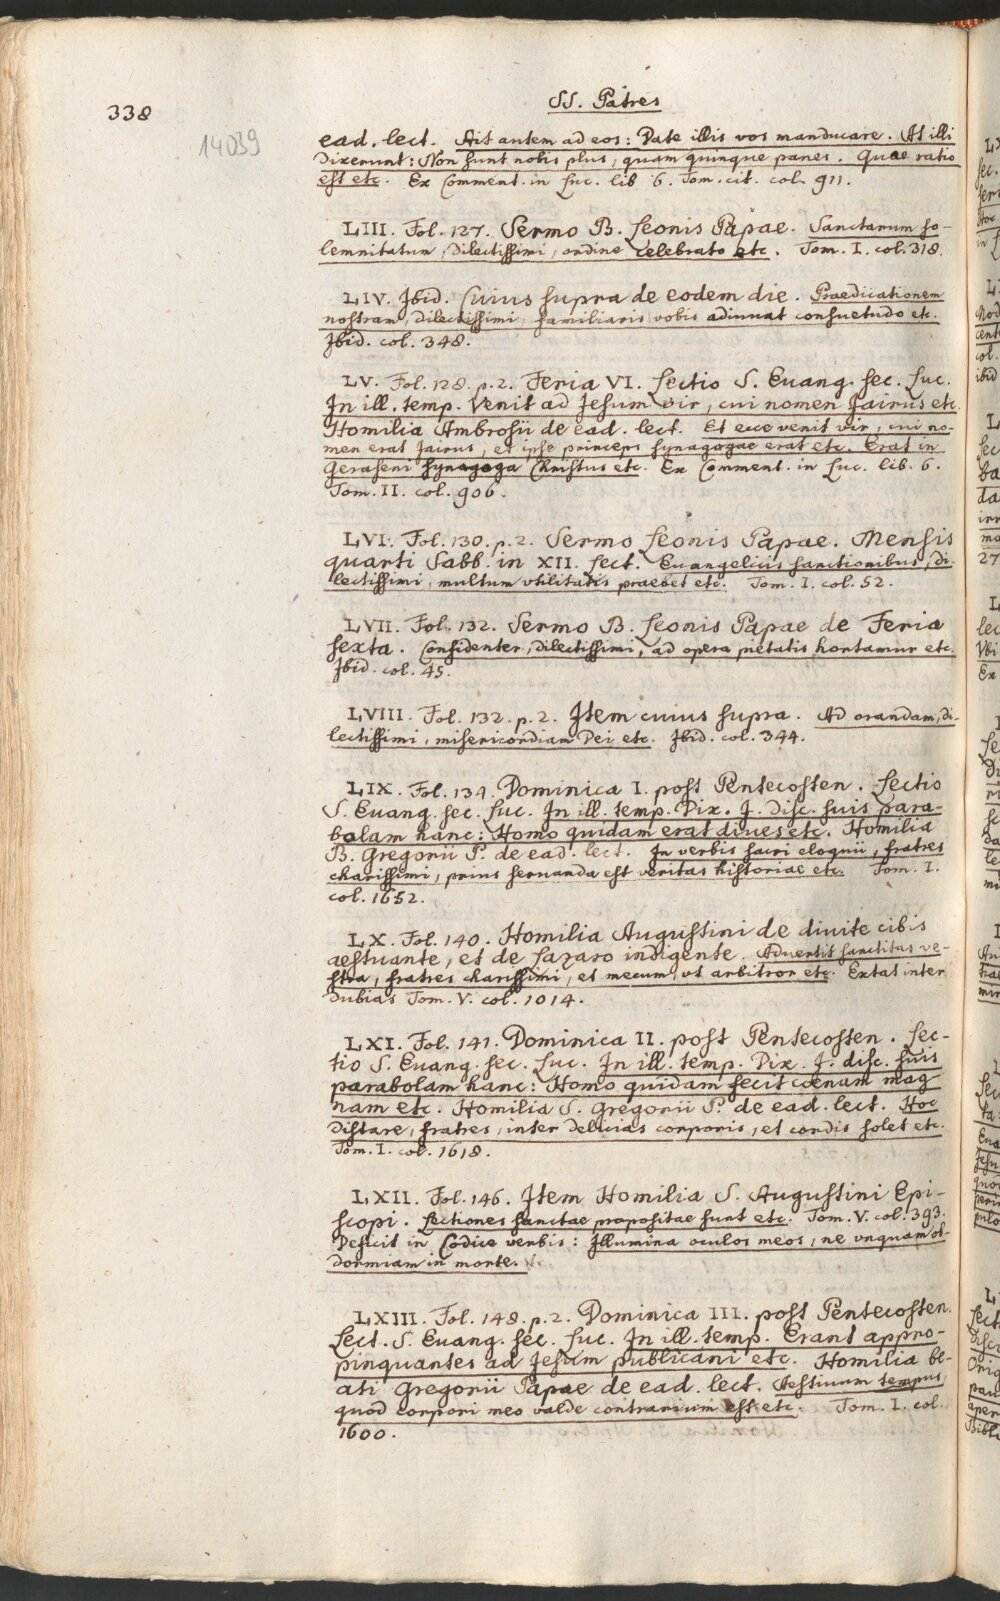 338
SS. Patres
14039
ead. lect. Ait autem ad eos: Date illis vos manducare. At illi
dixerunt: Non sunt nobis plus, quam quinque panes. Quae ratio
est etc. Ex Comment. in Luc. lib 6. Tom. cit. col. 911.
LIII. Fol. 127. Sermo B. Leonis Papae. Sanctarum so-
lemnitatum, dilectissimi, ordine celebrato etc. Tom. I. col. 318.
LIV. Ibid. Cuius supra de eodem die. Praedicationem
nostram, dilectissimi, familiaris vobis adiuuat consuetudo etc.
Ibid. col. 348.
LV. Fol. 128. p. 2. Feria VI. Lectio S. Euang. sec. Luc.
In ill. temp. Venit ad Jesum vir, cui nomen Jairus etc.
Homilia Ambrosii de ead. lect. Et ecce venit vir, cui no-
men erat Jairus, et ipse princeps synagogae erat etc. Erat in
Geraseni synagoga Christus etc. Ex Comment. in Luc. lib. 6.
Tom. II. col. 906.
LVI. Fol. 130. p. 2. Sermo Leonis Papae. Mensis
quarti Sabb. in XII. Lect. Euangelicis sanctionibus, di-
lectissimi, multum vtilitatis praebet etc. Tom. I. col. 52.
LVII. Fol. 132. Sermo B. Leonis Papae de Feria
sexta. Confidenter, dilectissimi, ad opera pietatis hortamur etc.
Ibid. col. 45.
LVIII. Fol. 132. p. 2. Item cuius supra. Ad orandam, di-
lectissimi, misericordiam Dei etc. Ibid. col. 344.
LIX. Fol. 134. Dominica I. post Pentecosten. Lectio
S. Euang. sec. Luc. In ill. temp. Dix. J. disc. suis para-
bolam hanc: Homo quidam erat diues etc. Homilia
B. Gregorii P. de ead. lect. In verbis sacri eloquii, fratres
charissimi, prius seruanda est veritas historiae etc. Tom. I.
col. 1652.
LX. Fol. 140. Homilia Augustini de diuite cibis
aestuante, et de Lazaro indigente. Aduertit sanctitas ve-
stra, fratres charissimi, et mecum, vt arbitror etc. Extat inter
dubias Tom. V. col. 1014.
LXI. Fol. 141. Dominica II. post Pentecosten. Lec-
tio S. Euang. sec. Luc. In ill. temp. Dix. J. disc. suis
parabolam hanc: Homo quidam fecit coenam mag
nam etc. Homilia S. Gregorii P. de ead. lect. Hoc
distare, fratres, inter delicias corporis, et cordis solet etc.
Tom. I. col. 1618.
LXII. Fol. 146. Item Homilia S. Augustini Epi-
scopi. Lectiones sanctae propositae sunt etc. Tom. V. col. 393.
Desicit in Codice verbis: Illumina oculos meos, ne vnquam ob-
dormiam in morte.
LXIII. Fol. 148. p. 2. Dominica III. post Pentecosten.
Lect. S. Euang. sec. Luc. In ill. temp. Erant appro-
pinquantes ad Jesum publicani etc. Homilia be-
ati Gregorii Papae de ead. lect. Aestiuum tempus,
quod corpori meo valde contrarium est etc. Tom. I. col.
1600.